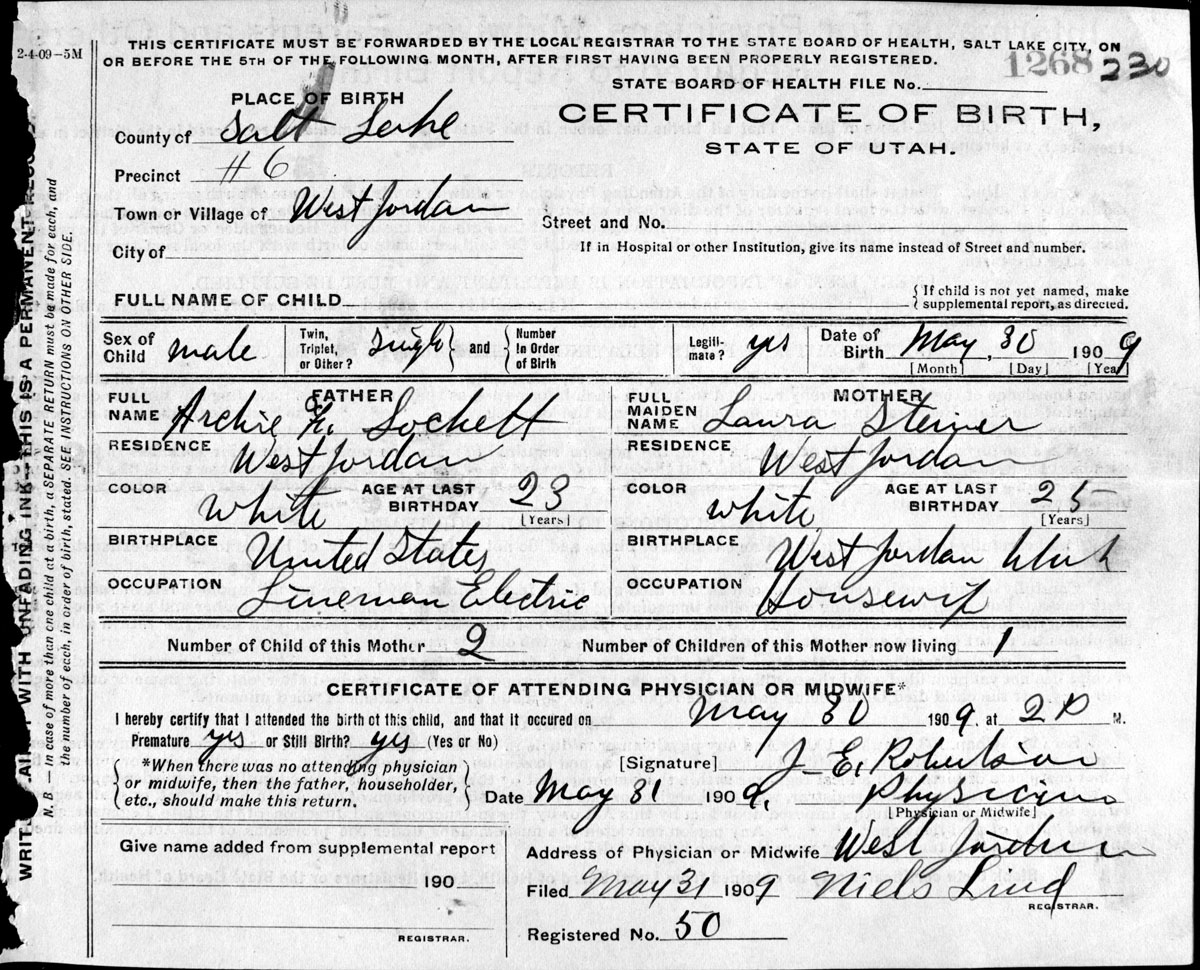 2-4-09-5M
THIS CERTIFICATE MUST BE FORWARDED BY THE LOCAL REGISTRAR TO THE STATE BOARD OF HEALTH, SALT LAKE CITY, ON
OR BEFORE THE 5TH OF THE FOLLOWING MONTH, AFTER FIRST HAVING BEEN PROPERLY REGISTERED.
1268 230
STATE BOARD OF HEALTH FILE No.
PLACE OF BIRTH
CERTIFICATE OF BIRTH,
STATE OF UTAH.
County of Salt Lake
Precinct #6
Town or Village of West Jordan
Street and No.
City of
If in Hospital or other Institution, give its name instead of Street and number.
FULL NAME OF CHILD
{If child is not yet named, make
supplemental report, as directed.
Sex of Child male
Twin, Triplet, or Other? Single } and { Number In Order of Birth
Legiti-mate? yes
Date of Birth May, 30 1909
[Month] [Day] [Year]
FATHER
FULL NAME Archie Lockett
RESIDENCE West Jordan
COLOR white AGE AT LAST BIRTHDAY 23
[Years]
BIRTHPLACE United States
OCCUPATION Lineman Electric
MOTHER
FULL MAIDEN NAME Laura Steiner
RESIDENCE West Jordan
COLOR white AGE AT LAST BIRTHDAY 25
[Years]
BIRTHPLACE West Jordan Utah
OCCUPATION Housewife
Number of Child of this Mother 2 Number of Children of this Mother now living 1
CERTIFICATE OF ATTENDING PHYSICIAN OR MIDWIFE*
I hereby certify that I attended the birth of this child, and that it occured on May 30 1909, at 2 P M.
Premature yes or Still Birth? yes (Yes or No)
{*When there was no attending physician
or midwife, then the father, householder,
etc., should make this return.}
[Signature] J. E. Robertson
Date May 31 1909. Physician
[Physician or Midwife]
Give name added from supplemental report
190
REGISTRAR.
Address of Physician or Midwife West Jordan
Filed May 31 1909 Niels Lind
REGISTRAR.
Registered No. 50
WITH UNFADING INK—THIS IS A PERMANENT
N. B.—In case of more than one child at a birth, a SEPARATE RETURN must be made for each, and
the number of each, in order of birth, stated. SEE INSTRUCTIONS ON OTHER SIDE.